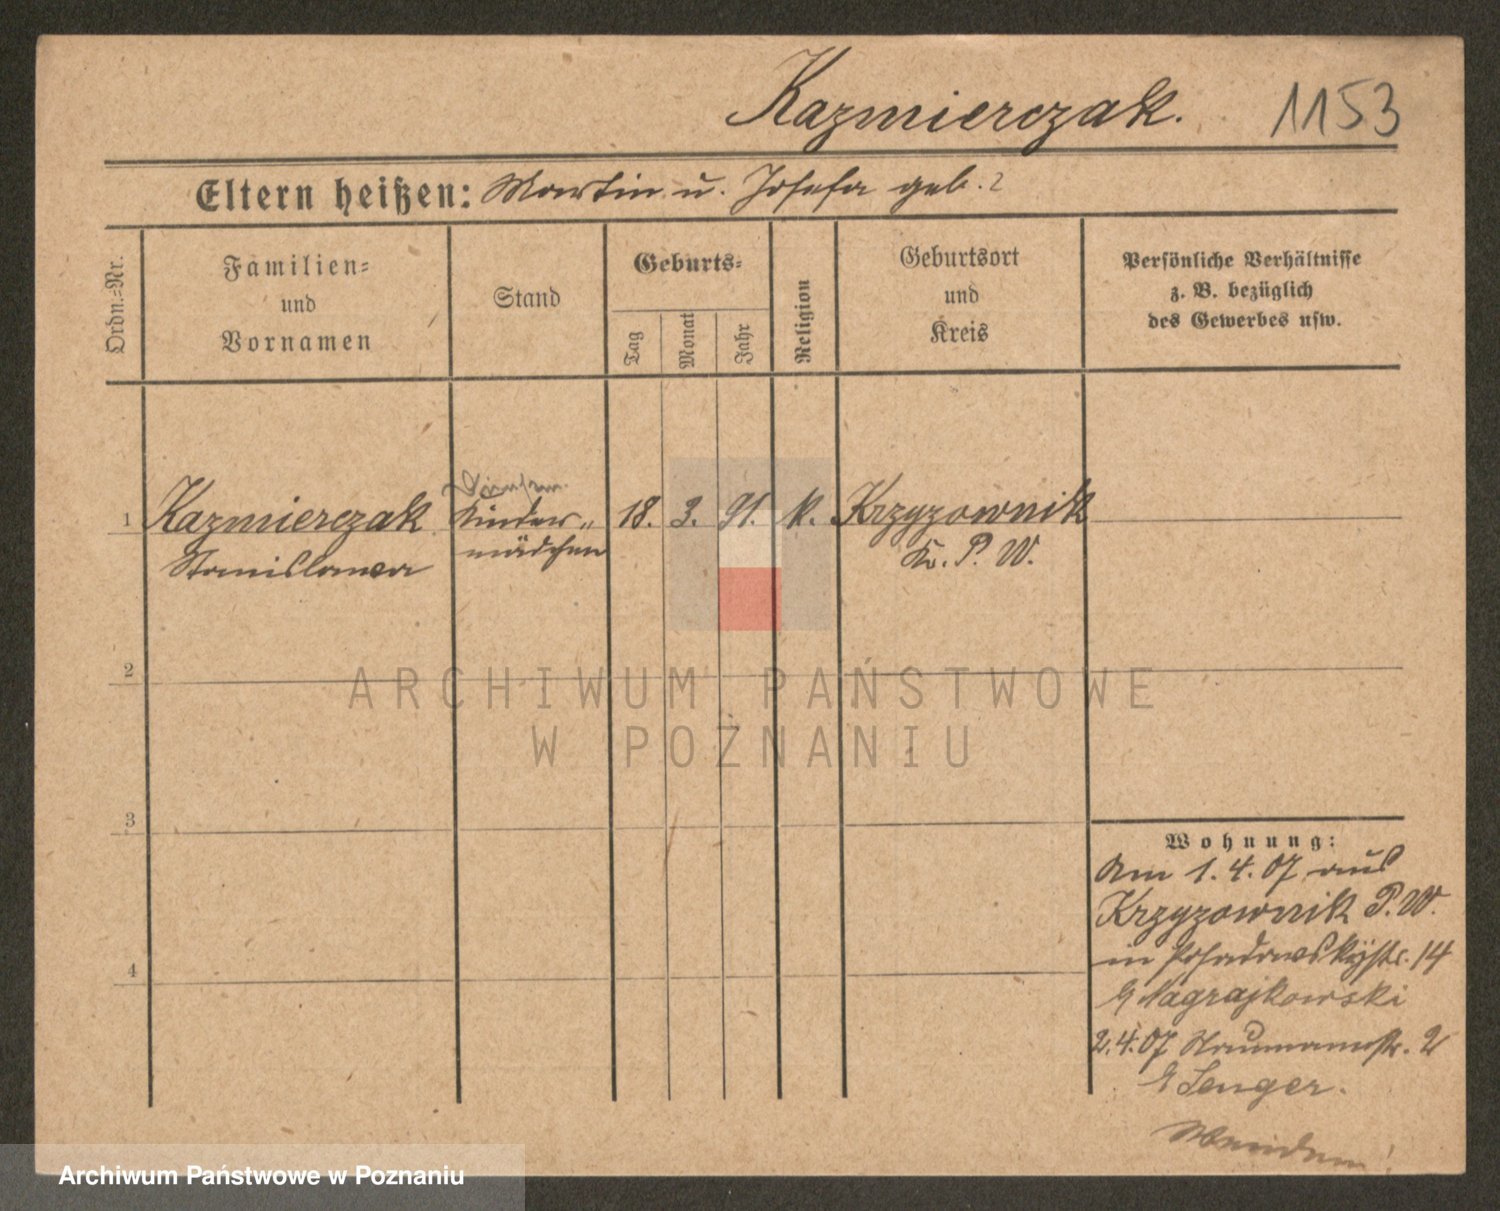 Kazmierczak. 1153
Eltern heißen: Martin u. Josefa geb. ?
Ordn.=Nr.
Familien=
und
Vornamen
Stand
Geburts=
Tag
Monat
Jahr
Religion
Geburtsort
und
Kreis
Persönliche Verhältnisse
z. B. bezüglich
des Gewerbes usw.
1 Kazmierczak Kinder„ 18. 3. 91. k. Krzyzownik
Stanislawa mädchen Kr. P. W.
2
3
4
Wohnung:
Am 1.4.07 aus
Krzyzownik P. W.
in Posadowskystr. 14
Nagrajkowski
2.4.07 Naumannstr. 2
Senger.
ARCHIWUM PAŃSTWOWE
W POZNANIU
Archiwum Państwowe w Poznaniu